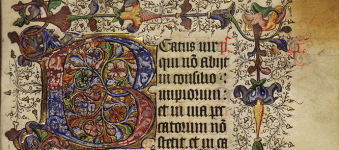 Beatus uir
qui nõ abijt
in consilio
impiorum:
et in uia pec
catorum nõ
stetit. et in ca